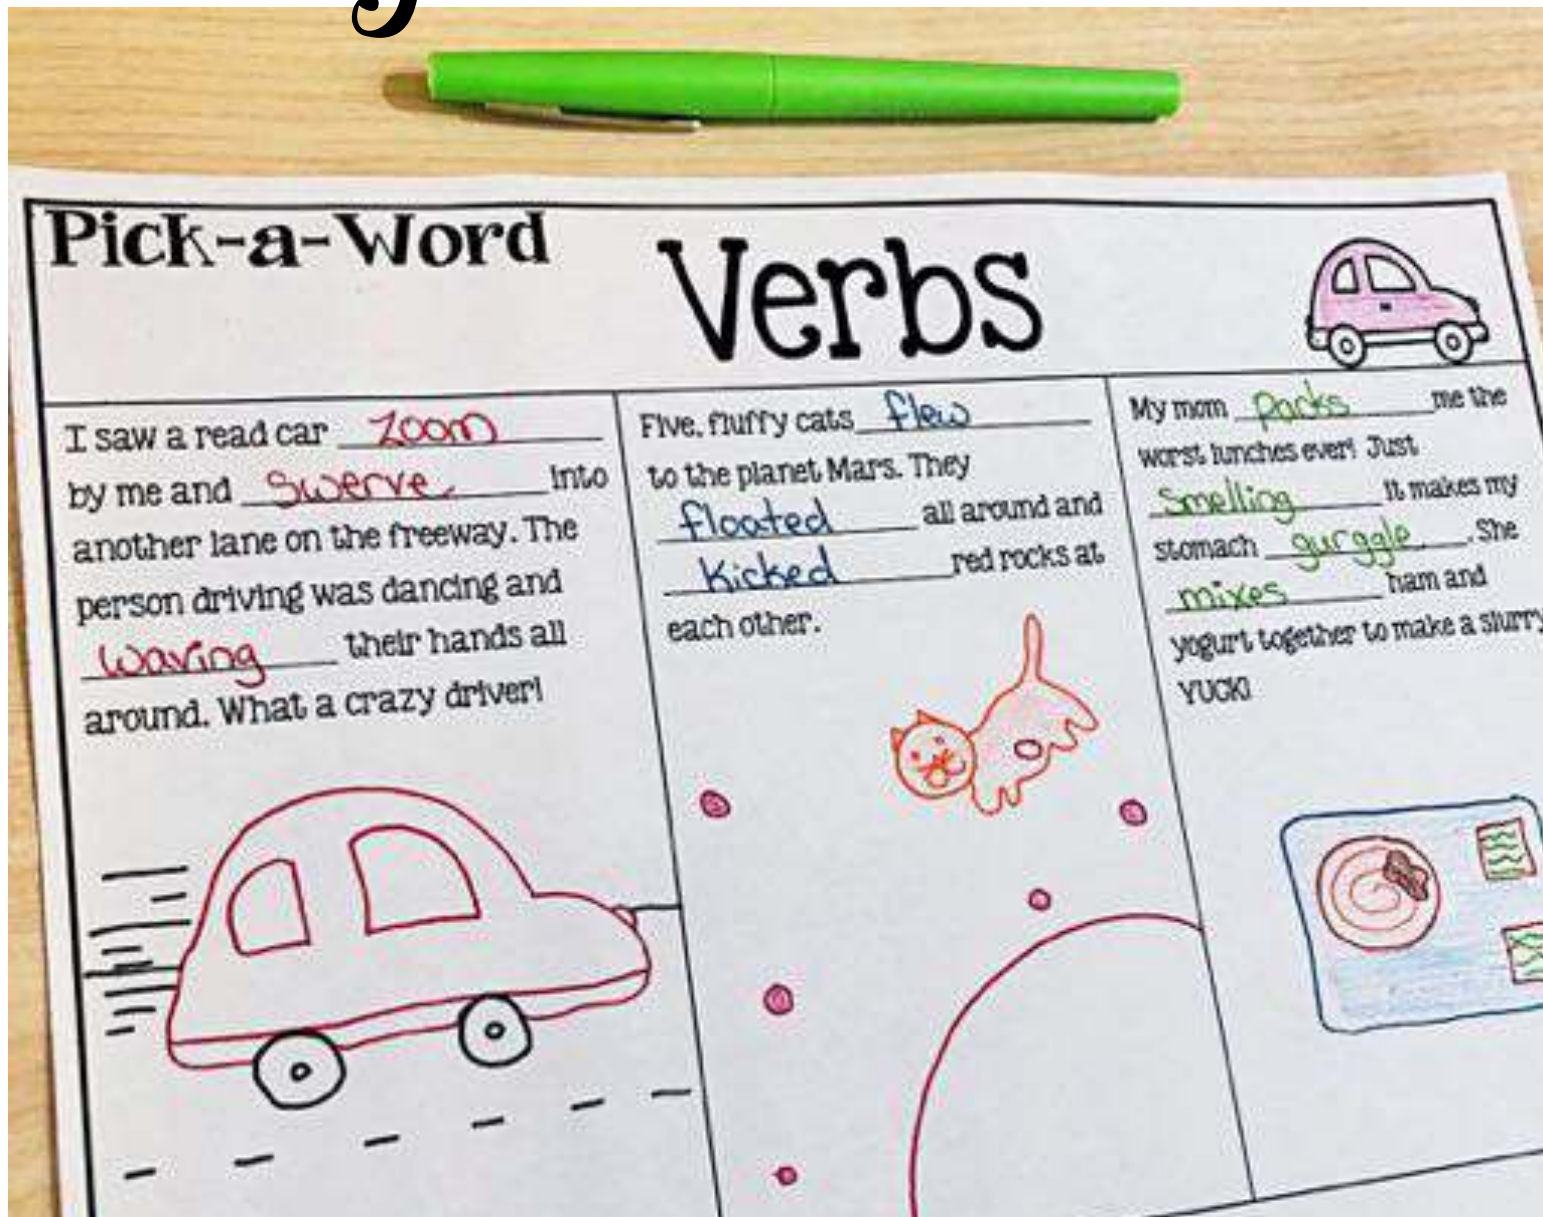 Pick-a-Word
Verbs
I saw a read car zoom
by me and swerve into
another lane on the freeway. The
person driving was dancing and
waving their hands all
around. What a crazy driver!
Five, fluffy cats flew
to the planet Mars. They
floated all around and
kicked red rocks at
each other.
My mom packs me the
worst lunches ever! Just
smelling it makes my
stomach gurggle. She
mixes ham and
yogurt together to make a slurry
YUCK!